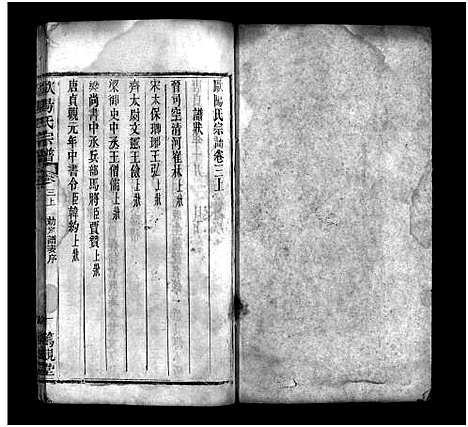 歐陽氏宗譜卷三上
譜狀
晉司空清河崔林上狀
宋太保瑯琊王弘上狀
齊太尉文鑑王儉上狀
梁御史中丞王僧儒上狀
梁尚書中丞兵部馬將臣賈贊上狀
唐貞觀元年中書令臣韓約上狀
歐陽氏宗譜 卷三上 勅定譜表序 一 篤親堂